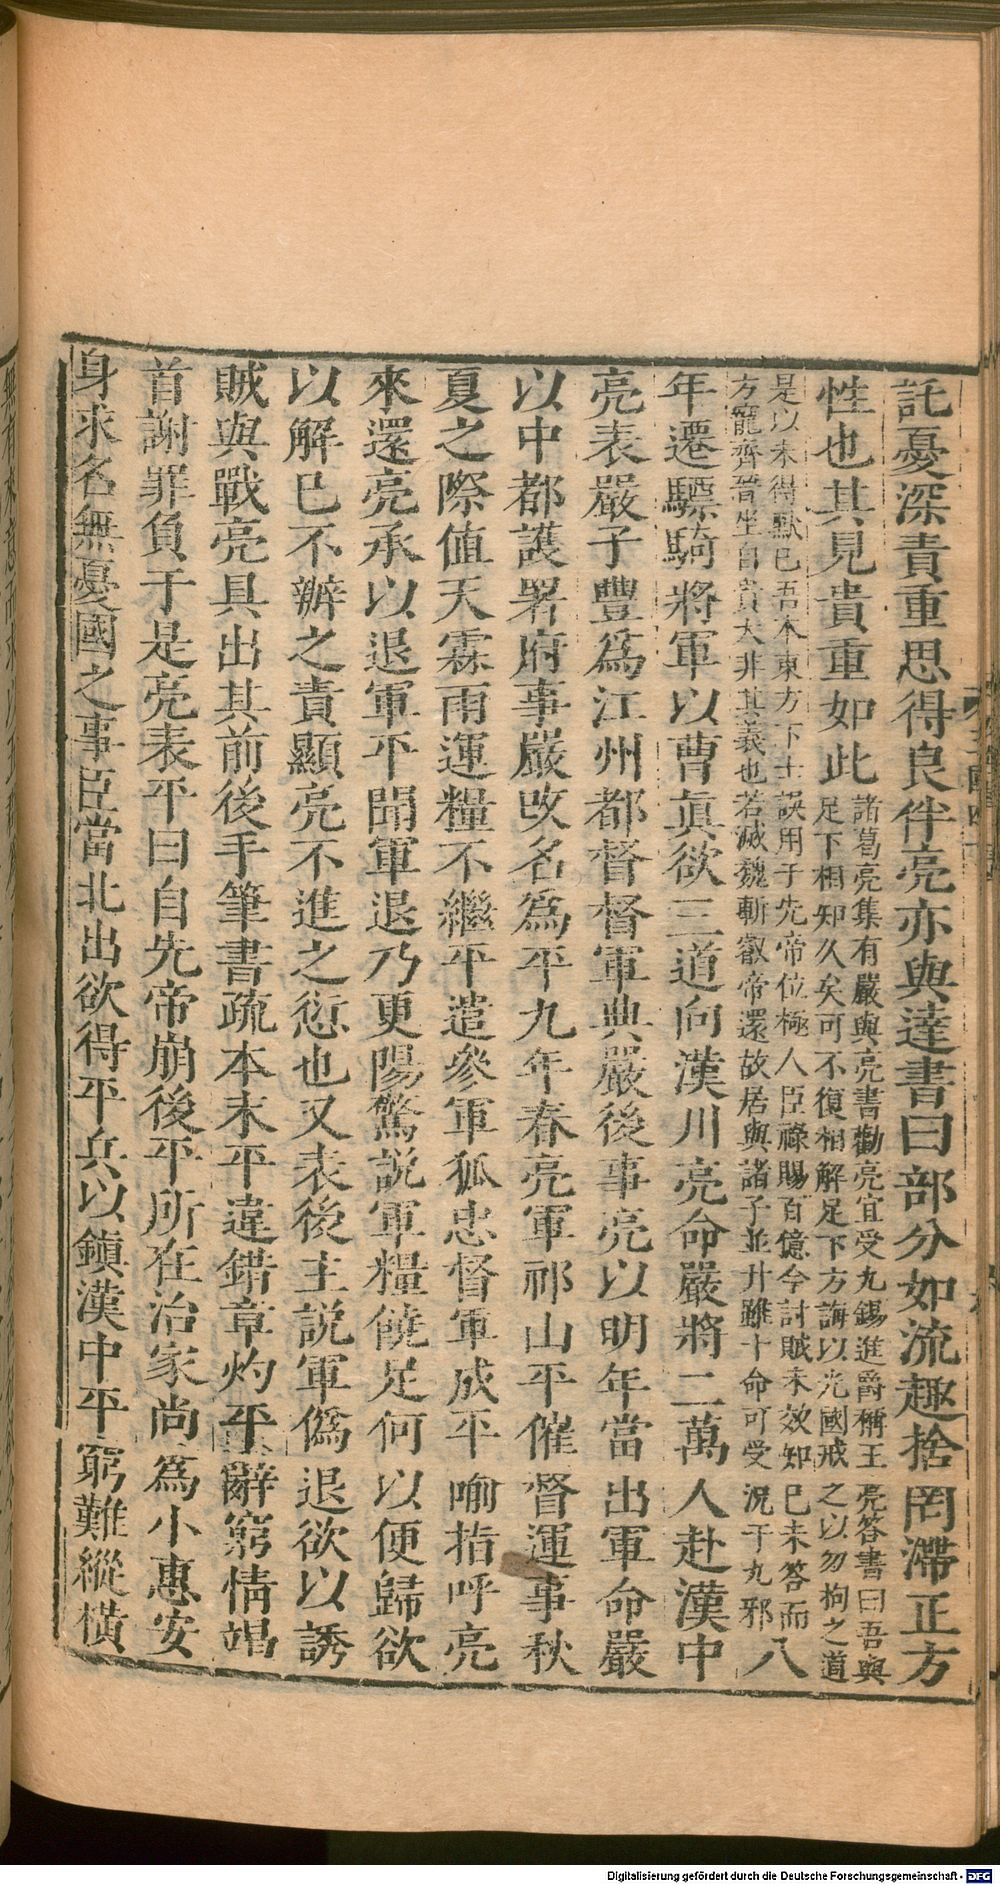 託憂深責重思得良伴亮亦與達書曰部分如流趣捨罔滯正方
性也其見貴重如此諸葛亮集有嚴與亮書勸亮宜受九錫進爵稱王亮答書曰吾與
足下相知久矣可不復相解足下方誨以光國戒之以勿拘之道
是以未得默已吾本東方下士誤用于先帝位極人臣祿賜百億今討賊未效知已未答而
方寵齊晉坐自貴大非其義也若滅魏斬叡帝還故居與諸子並升雖十命可受況于九邪八
年遷驃騎將軍以曹眞欲三道向漢川亮命嚴將二萬人赴漢中
亮表嚴子豐爲江州都督督軍典嚴後事亮以明年當出軍命嚴
以中都護署府事嚴改名爲平九年春亮軍祁山平催督運事秋
夏之際値天霖雨運糧不繼平遣參軍狐忠督軍成平喻指呼亮
來還亮承以退軍平聞軍退乃更陽驚説軍糧饒足何以便歸欲
以解已不辦之責顯亮不進之愆也又表後主説軍僞退欲以誘
賊與戰亮具出其前後手筆書疏本末平違錯章灼平辭窮情竭
首謝罪負于是亮表平曰自先帝崩後平所在治家尚爲小惠安
身求名無憂國之事臣當北出欲得平兵以鎮漢中平窮難縱橫
Digitalisierung gefördert durch die Deutsche Forschungsgemeinschaft - DFG